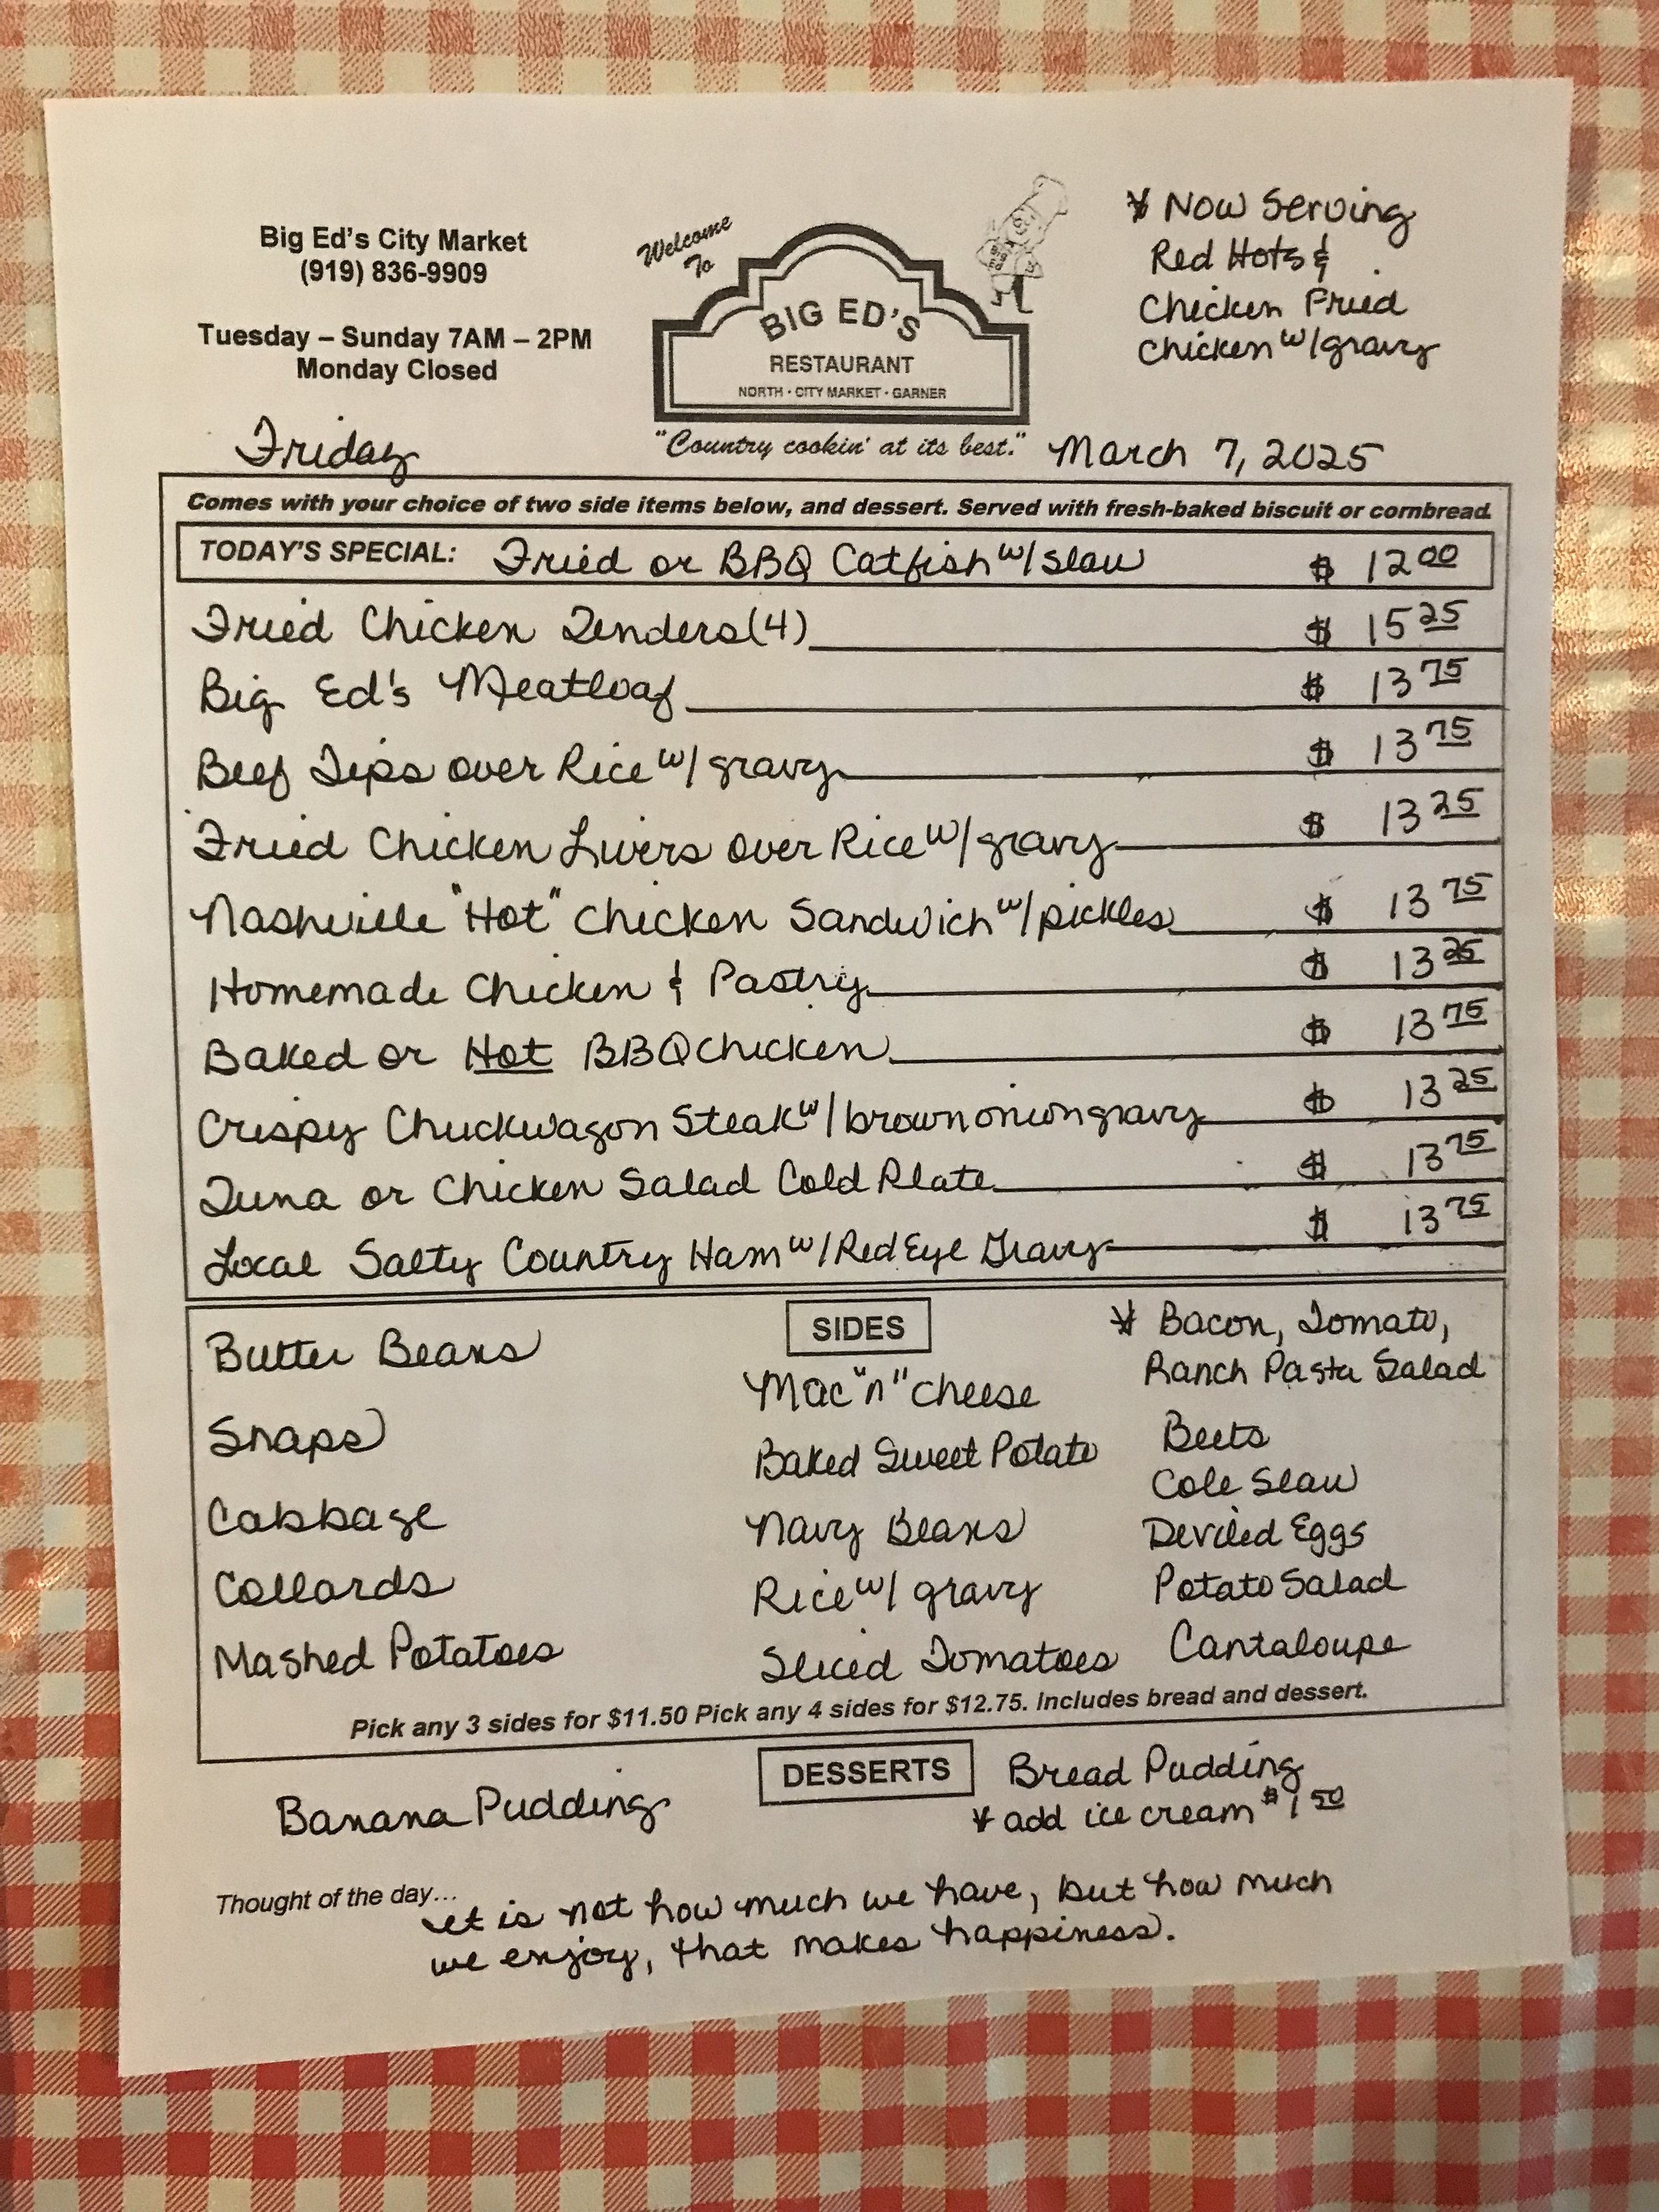 Big Ed's City Market
(919) 836-9909
Tuesday – Sunday 7AM – 2PM
Monday Closed
Welcome
To
BIG ED'S
RESTAURANT
NORTH · CITY MARKET · GARNER
"Country cookin' at its best."
* Now Serving
Red Hots &
Chicken Fried
Chicken w/gravy
Friday
March 7, 2025
Comes with your choice of two side items below, and dessert. Served with fresh-baked biscuit or cornbread.
TODAY'S SPECIAL: Fried or BBQ Catfish w/slaw $ 12 00
Fried Chicken Tenders(4) $ 15 25
Big Ed's Meatloaf $ 13 75
Beef Tips over Rice w/ gravy $ 13 75
Fried Chicken Livers over Rice w/gravy $ 13 25
Nashville "Hot" Chicken Sandwich w/pickles $ 13 75
Homemade Chicken & Pastry $ 13 25
Baked or Hot BBQ Chicken $ 13 75
Crispy Chuckwagon Steak w/brown onion gravy $ 13 25
Tuna or Chicken Salad Cold Plate $ 13 75
Local Salty Country Ham w/Red Eye Gravy $ 13 75
SIDES
Butter Beans
Snaps
Cabbage
Collards
Mashed Potatoes
Mac "n" Cheese
Baked Sweet Potato
Navy Beans
Rice w/ gravy
Sliced Tomatoes
* Bacon, Tomato,
Ranch Pasta Salad
Beets
Cole Slaw
Deviled Eggs
Potato Salad
Cantaloupe
Pick any 3 sides for $11.50 Pick any 4 sides for $12.75. Includes bread and dessert.
DESSERTS
Banana Pudding
Bread Pudding
* add ice cream $1 50
Thought of the day...
It is not how much we have, but how much
we enjoy, that makes happiness.